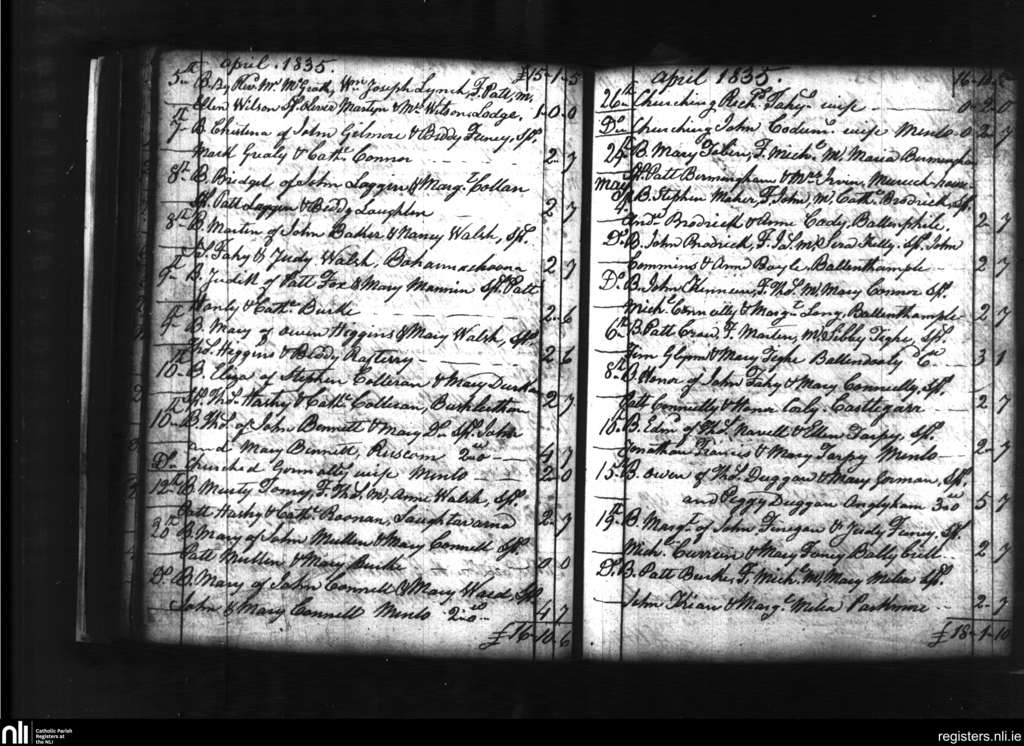 April. 1835. £15-1-5
5th B. By Revd. Mr. McGrath, Wm. Joseph Lynch, F. Patt, M.
Ellen Wilson Sp. Martyn & Mrs. Wilson Lodge, 1-0-0
7th B. Christina of John Gilmore & Biddy Feney, Sps.
Mark Grealy & Cathe. Connor 2-7
8th B. Bridget of John Loggin & Margt. Collan
Sp. Patt Loggin & Biddy Loughlin 2-7
8th B. Martin of John Baker & Nancy Walsh, Sps.
Fahy & Judy Walsh 2-7
9th B. Judith of Patt Fox & Mary Mannin Sps. Patt
Hanly & Cathe. Burke 2-6
9th B. Mary of Owen Heggins & Mary Walsh, Sps.
Thos. Heggins & Biddy Rafterry 2-6
10th B. Eliza of Stephen Colleran & Mary
Sps. Thos. Hashy & Cathe. Colleran, 2-7
10th B. Thos. of John Bennett & Mary Do. Sps. John
and Mary Bennett, 2nd 4-7
Do. Churched wife Menlo 2-0
12th B. Minty Toney, F. Thos. M. Anne Walsh, Sps.
Patt Hashy & Cathe. Roonan, 2-7
20th B. Mary of John Mullen & Mary Connell Sps.
Patt Mullen & Mary Burke 0-0
Do. B. Mary of John Connell & Mary Ward Sps.
John & Mary Connell Menlo 4-7
£16-10-6
April 1835. 16-10-6
26th Churching Richd. Fahy's wife 0-2-
Do. Churching John wife Menlo 0-2-7
B. Mary Tobin, F. Miche. M. Maria Bermingham
Sp. Patt Bermingham & Mrs. Irvin,
May B. Stephen Maher, F. John, M. Cathe. Brodrick, Sps.
Andw. Brodrick & Anne Cady, 2-7
Do. B. John Brodrick, F. Jas. M. Kelly, Sps. John
Commins & Ann Boyle 2-7
Do. B. John F. Thos. M. Mary Connor Sps.
Michl. Connolly & Margt. Long, 2-7
6th B. Patt F. Marten, M. Sibby Tighe, Sps.
Tim Glynn & Mary Tighe 3-1
8th B. Honor of John Fahy & Mary Connelly, Sps.
Patt Connelly & Honor Castlegarr 2-7
10th B. Edmd. of Thos. & Ellen Tarpy, Sps.
Jonathan Francis & Mary Tarpy Menlo 2-7
15th B. Owen of Thos. Duggan & Mary Gorman, Sps.
and Peggy Duggan Anglyham 5-7
19th B. Margt. of John Finegan & Judy Finney, Sps.
Mich. Curreen & Mary Toney 2-7
Do. B. Patt Burke, F. Miche. M. Mary Melia Sps.
John & Margt. Melia Parkmore 2-7
£18-1-10
nli
Catholic Parish
Registers at
the NLI
registers.nli.ie